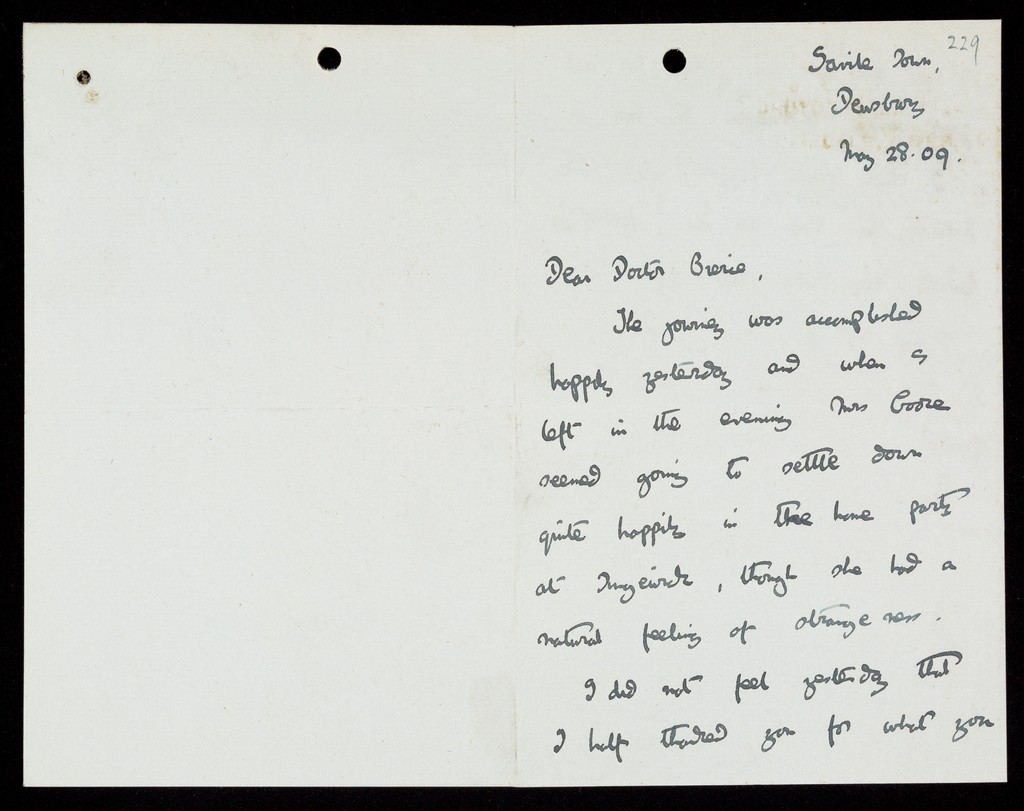 229
Savile Town,
Dewsbury
May 28. 09.
Dear Doctor Brerie,
The journey was accomplished
happily yesterday and when I
left in the evening Mrs
seemed going to settle down
quite happily in the home party
at, though she had a
natural feeling of strangeness.
I did not feel yesterday that
I half thanked you for what you